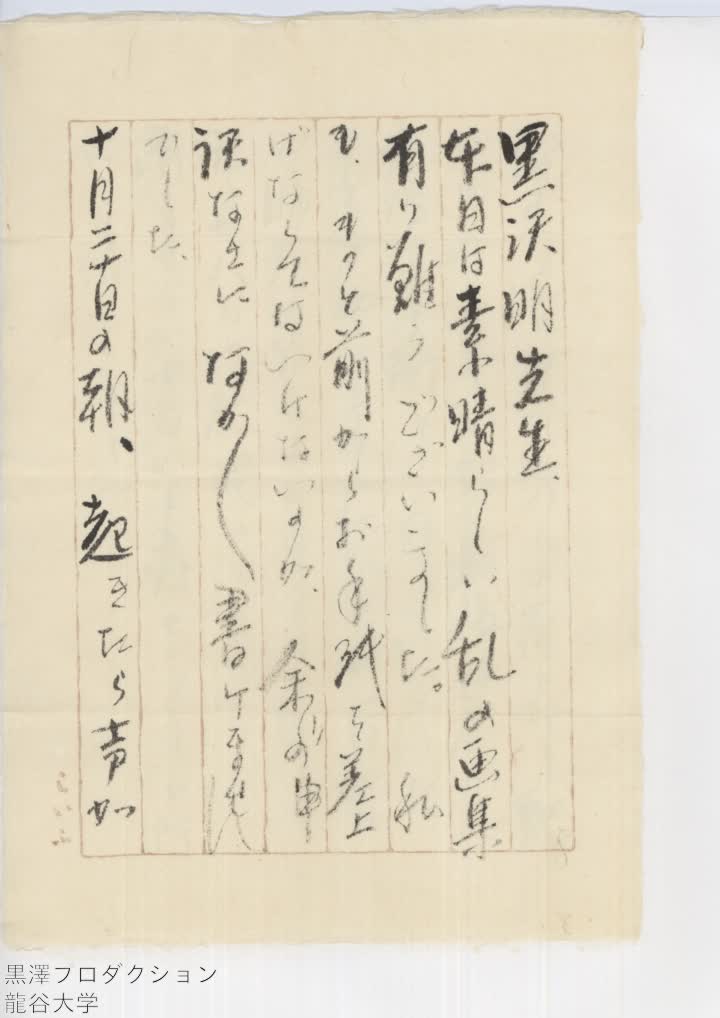 黒沢明先生、
本日は素晴らしい乱の画集
有り難うございました。私
も、もっと前からお手紙を差上
げなくてはいけないのが、余り申
訳なさになかく書けませんで
でした、
十月二十日の朝、起きたら声が
黒澤プロダクション
龍谷大学